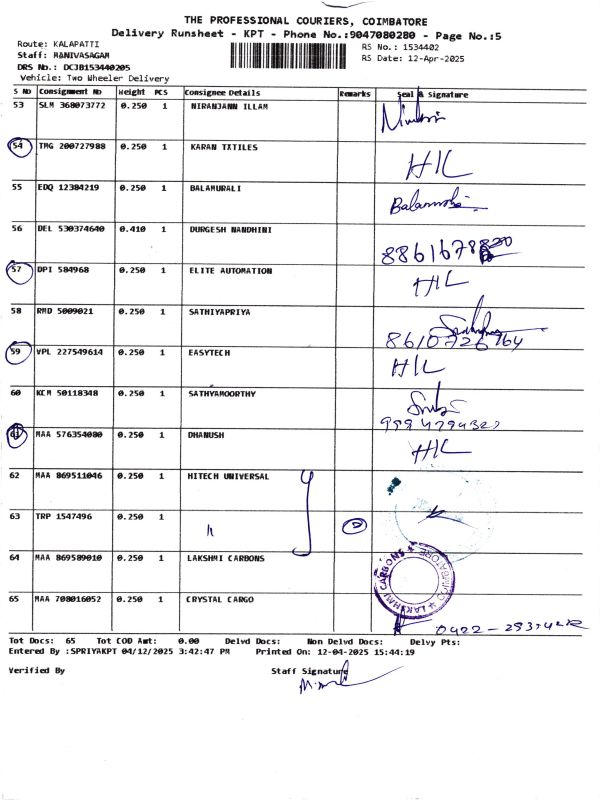 THE PROFESSIONAL COURIERS, COIMBATORE
Delivery Runsheet - KPT - Phone No.:9047080280 - Page No.:5
Route: KALAPATTI
RS No.: 1534402
Staff: MANIVASAGAM
RS Date: 12-Apr-2025
DRS No.: DCJB153440205
Vehicle: Two Wheeler Delivery
S NO Consignment No Weight PCS Consignee Details Remarks Seal & Signature
53 SLM 368073772 0.250 1 NIRANJANN ILLAM
54 TMG 200727988 0.250 1 KARAN TXTILES H/L
55 EDQ 12384219 0.250 1 BALAMURALI
56 DEL 530374640 0.410 1 DURGESH NANDHINI
57 DPI 584968 0.250 1 ELITE AUTOMATION H/L
58 RMD 5009021 0.250 1 SATHIYAPRIYA
8610726764
59 VPL 227549614 0.250 1 EASYTECH H/L
60 KCM 50118348 0.250 1 SATHYAMOORTHY
61 MAA 576354080 0.250 1 DHANUSH H/L
62 MAA 869511046 0.250 1 HITECH UNIVERSAL
63 TRP 1547496 0.250 1 〃 2
64 MAA 869589010 0.250 1 LAKSHMI CARBONS
LAKSHMI CARBONS ★ COIMBATORE ★
65 MAA 708016052 0.250 1 CRYSTAL CARGO
Tot Docs: 65 Tot COD Amt: 0.00 Delvd Docs: Non Delvd Docs: Delvy Pts:
Entered By :SPRIYAKPT 04/12/2025 3:42:47 PM Printed On: 12-04-2025 15:44:19
Verified By Staff Signature